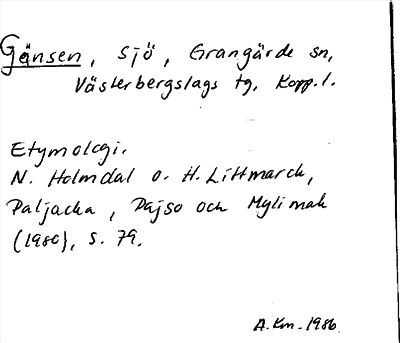 Gänsen, sjö, Grangärde sn,
Västerbergslags tg, Kopp. l.
Etymologi.
N. Holmdal o. H. Littmarck,
Paljacka, Pajso och Mylimak
(1980), s. 79.
A. Km. 1986